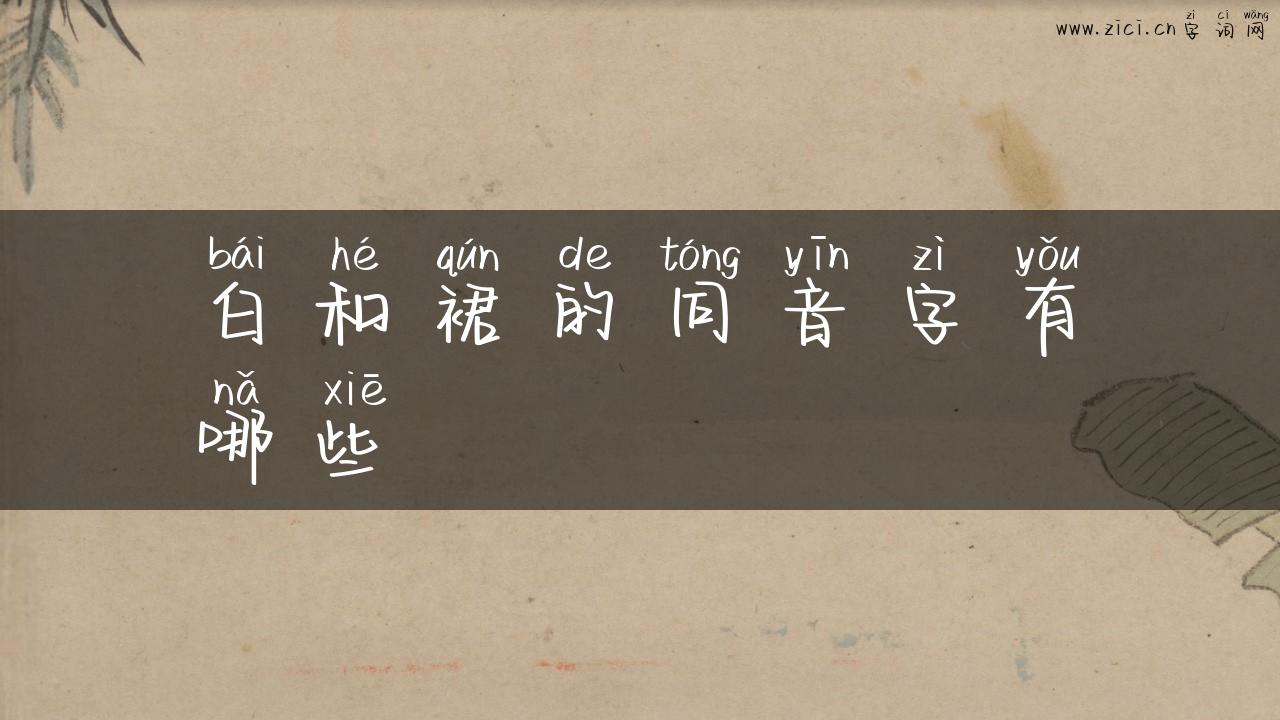 zì cí wǎng
www.zici.cn 字词网
bái hé qún de tóng yīn zì yǒu
白和裙的同音字有
nǎ xiē
哪些